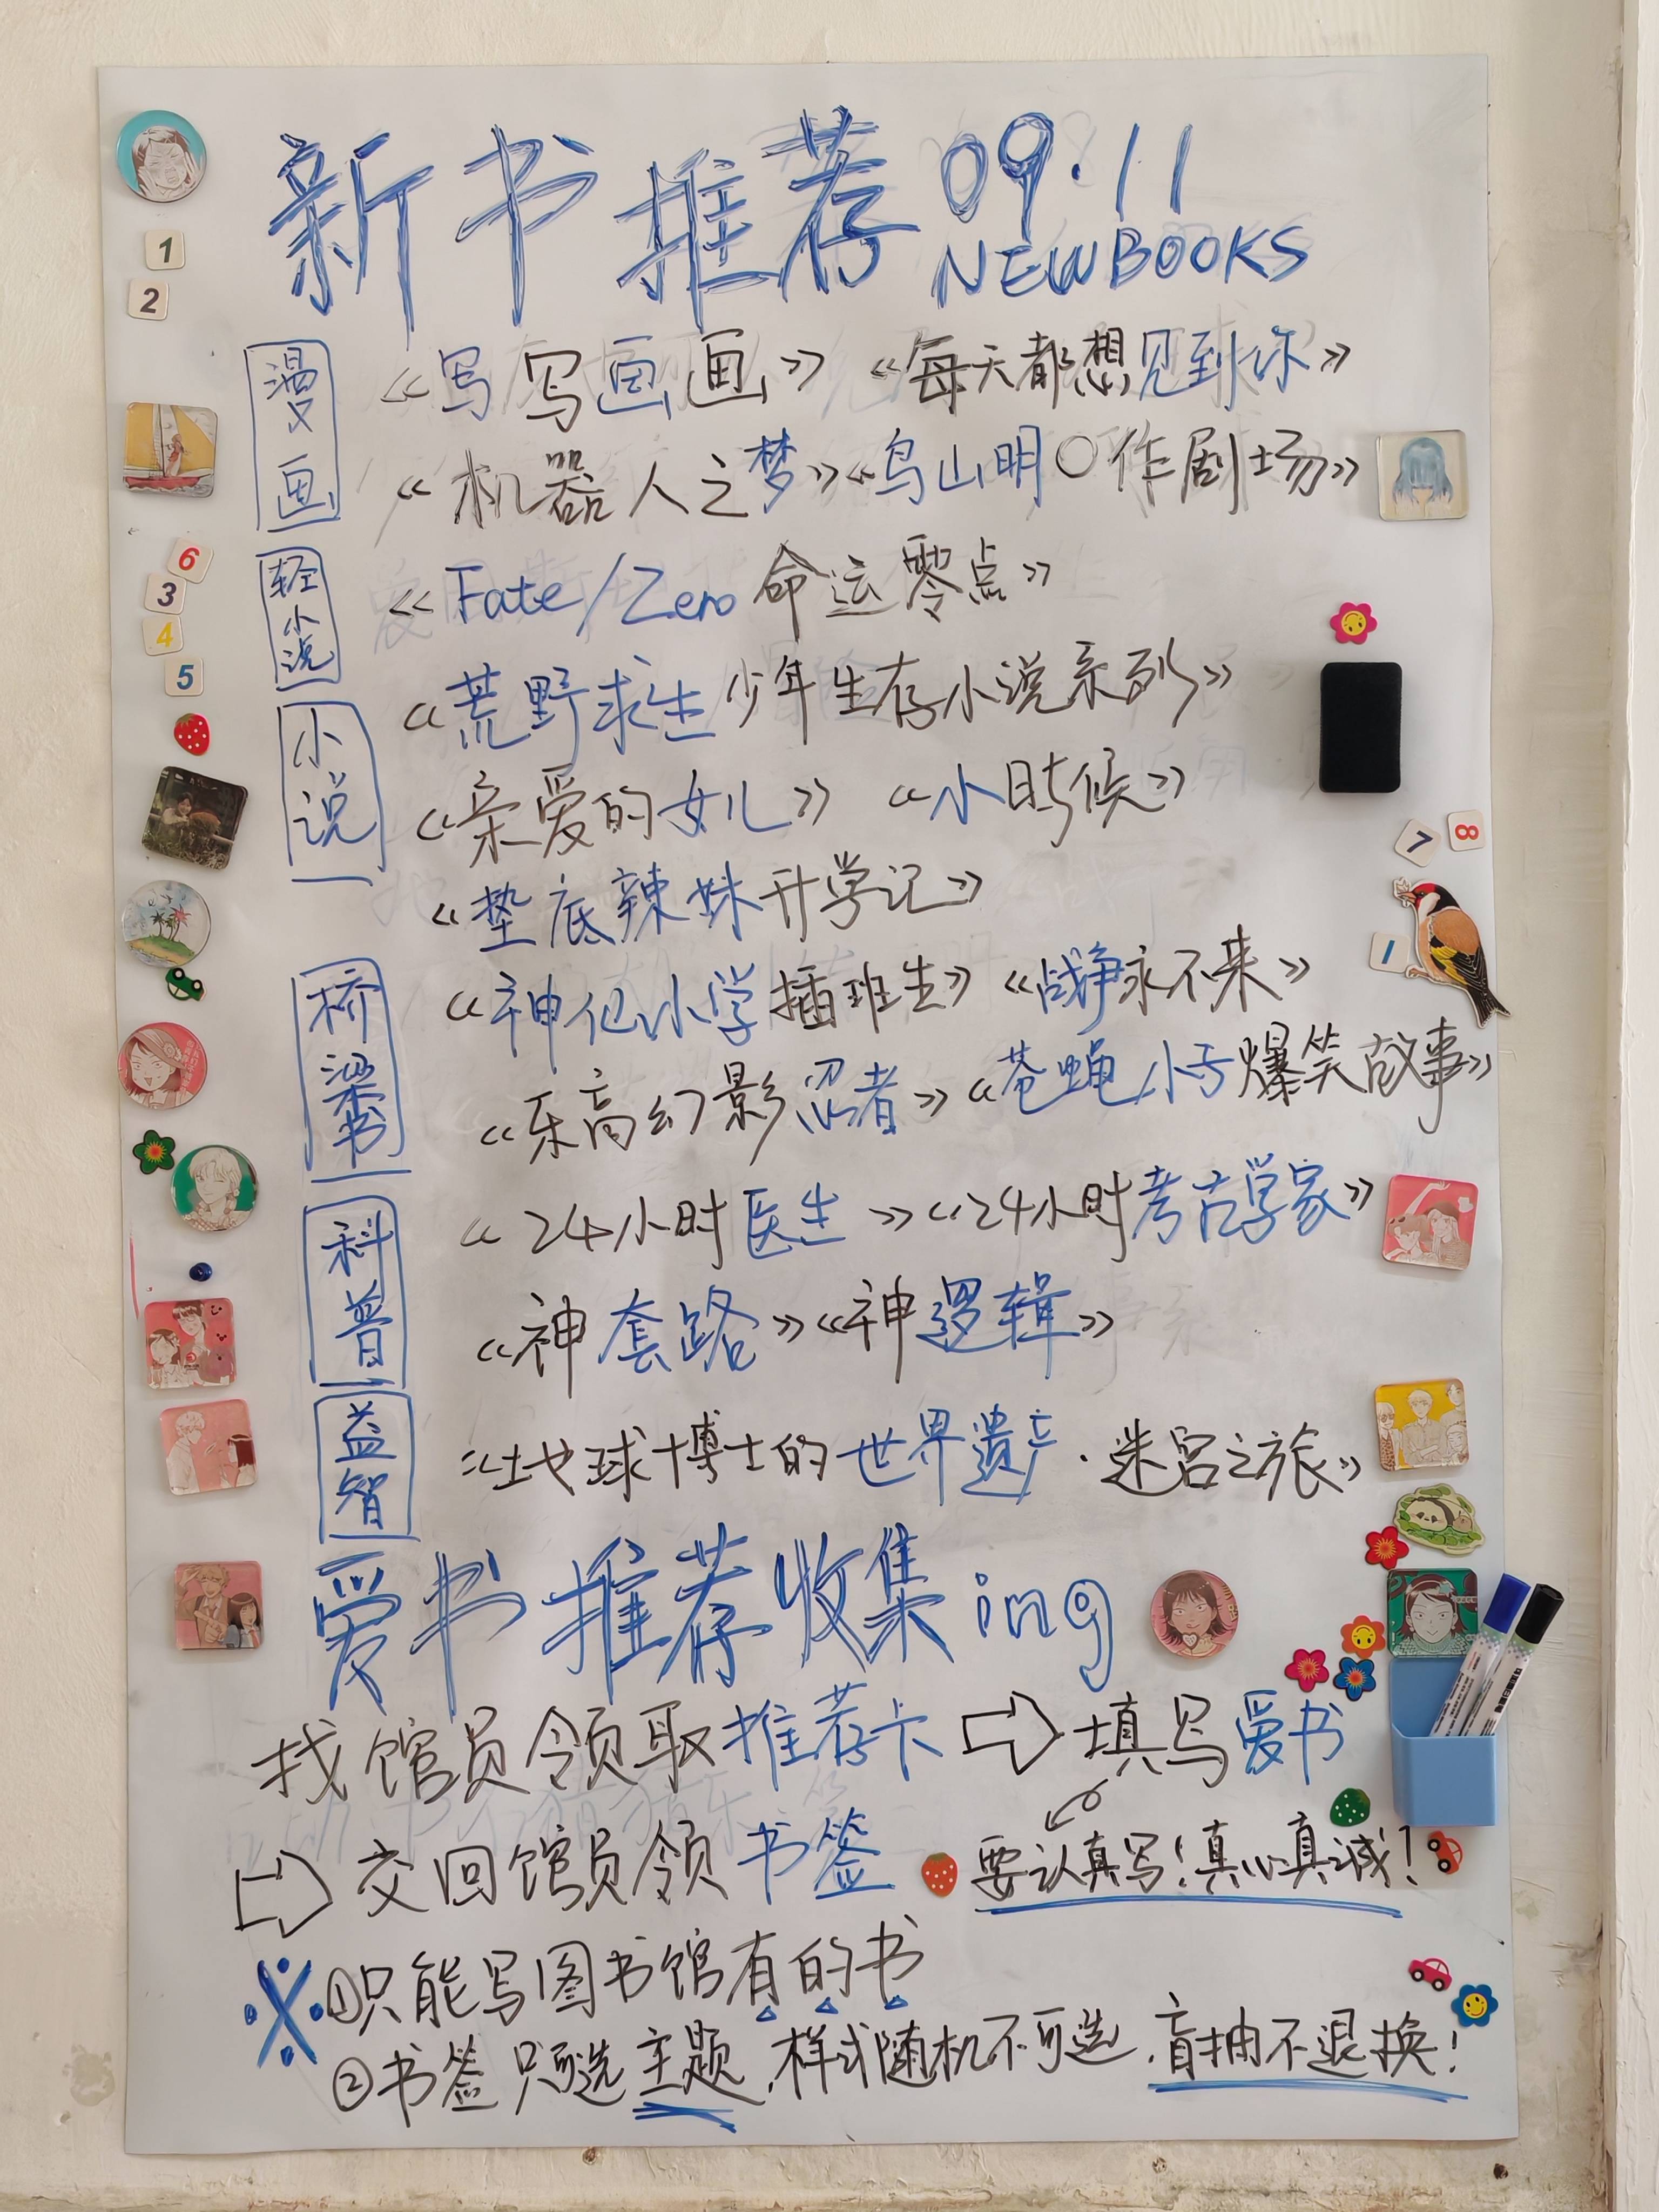 新书推荐 09·11
NEW BOOKS
漫画
《写写画画》 《每天都想见到你》
《机器人之梦》《鸟山明〇作剧场》
轻小说
《Fate/Zero 命运零点》
小说
《荒野求生少年生存小说系列》
《亲爱的女儿》 《小时候》
《垫底辣妹升学记》
桥梁书
《神仙小学插班生》《战争永不来》
《乐高幻影忍者》《苍蝇小子爆笑故事》
科普
《24小时医生》《24小时考古学家》
《神套路》《神逻辑》
益智
《地球博士的世界遗产·迷宫之旅》
爱书推荐收集ing
找馆员领取推荐卡⇨填写爱书
⇨交回馆员领书签 要认真写!真心真诚!
※①只能写图书馆有的书
②书签只可选主题,样式随机不可选,盲抽不退换!
1
2
6
3
4
5
7
8
1